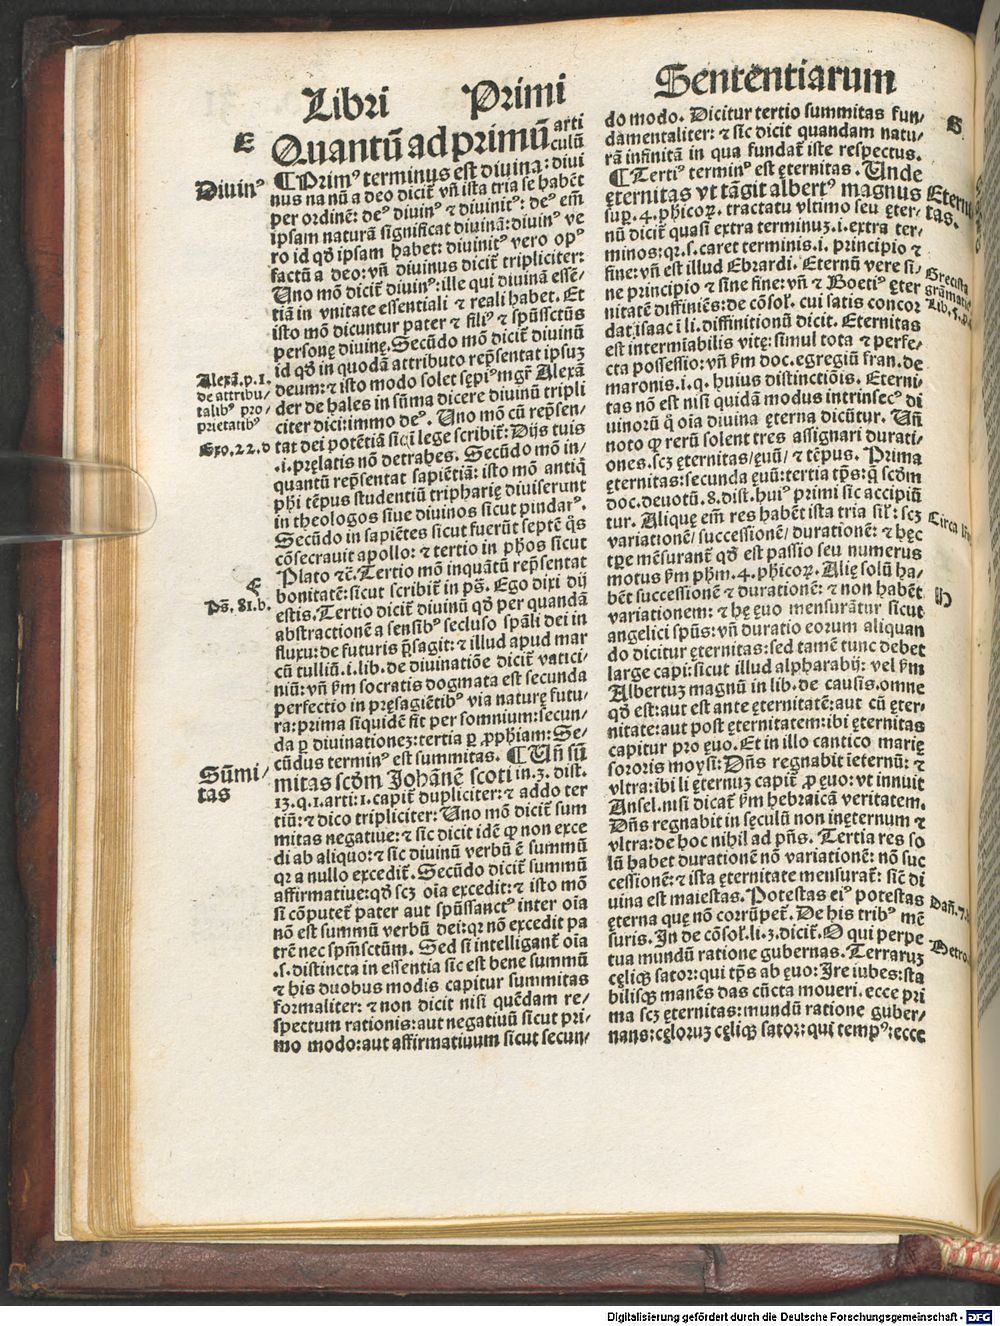 Libri Primi Sententiarum
E
Quantū ad primū arti
culū
Diuinꝰ
¶Primꝰ terminus est diuina: diui
nus na nū a deo dicit̄ vn̄ ista tria se habēt
per ordinē: deꝰ diuinꝰ ⁊ diuinitꝰ: deꝰ em̄
ipsam naturā significat diuinā: diuinꝰ ve
ro id qd̄ ipsam habet: diuinitꝰ vero opꝰ
factū a deo: vn̄ diuinus dicit̄ tripliciter:
Uno mō dicit̄ diuinꝰ: ille qui diuinā essē-
tiā in vnitate essentiali ⁊ reali habet. Et
isto mō dicuntur pater ⁊ filiꝰ ⁊ spūssctūs
personę diuinę. Secūdo mō dicit̄ diuinū
id qd̄ in quodā attributo rep̄sentat ipsuz
Alexā. p. 1.
de attribu/
talibꝰ pro/
prietatibꝰ
deum: ⁊ isto modo solet sępiꝰ mgr̄ Alexā
der de hales in sūma dicere diuinū tripli
citer dici: immo deꝰ. Uno mō cū rep̄sen/
Exo. 22. d
tat dei potētiā sic̄ i lege scribit̄: Dijs tuis
.i. pręlatis nō detrahes. Secūdo mō in/
quantū rep̄sentat sapiētiā: isto mō antiq̄
ph̄i tēpus studentiū tripharię diuiserunt
in theologos siue diuinos sicut pindarꝰ.
Secūdo in sapiētes sicut fuerūt septē q̄s
cōsecrauit apollo: ⁊ tertio in ph̄os sicut
Plato ⁊c̄. Tertio mō inquātū rep̄sentat
F
Ps̄. 81. b.
bonitatē: sicut scribit̄ in ps̄. Ego dixi dij
estis. Tertio dicit̄ diuinū qd̄ per quandā
abstractionē a sensibꝰ secluso sp̄ali dei in
fluxu: de futuris p̄sagit: ⁊ illud apud mar
cū tulliū .i. lib. de diuinatiōe dicit̄ vatici/
niū: vn̄ ẜm socratis dogmata est secunda
perfectio in pręsagiētibꝰ via naturę futu/
ra: prima siquidē fit per somnium: secun/
da ꝑ diuinationez: tertia ꝑ ꝓph̄iam: Se/
cūdus terminꝰ est summitas. ¶Un̄ sū
Sūmi/
tas
mitas scd̄m Johānē scoti in .3. dist.
13. q. 1. arti: 1. capit̄ dupliciter: ⁊ addo ter
tiū: ⁊ dico tripliciter: Uno mō dicit̄ sum
mitas negatiue: ⁊ sic dicit idē ꝙ non exce
di ab aliquo: ⁊ sic diuinū verbū ē summū
qꝛ a nullo excedit̄. Secūdo dicit̄ summū
affirmatiue: qd̄ scz oīa excedit: ⁊ isto mō
si cōputet̄ pater aut spūssanctꝰ inter oīa
nō est summū verbū dei: qꝛ nō excedit pa
trē nec spm̄sctūm. Sed si intelligant̄ oīa
.s. distincta in essentia sic est bene summū
⁊ his duobus modis capitur summitas
formaliter: ⁊ non dicit nisi quēdam re/
spectum rationis: aut negatiuū sicut pri/
mo modo: aut affirmatiuum sicut secun/
do modo. Dicitur tertio summitas fun/
G
damentaliter: ⁊ sic dicit quandam natu/
rā infinitā in qua fundat̄ iste respectus.
¶Tertiꝰ terminꝰ est ęternitas. Unde
ęternitas vt tāgit albertꝰ magnus
Etern
tas.
sup̲. 4. ph̄icoꝝ. tractatu vltimo seu ęter/
nū dicit̄ quasi extra terminuz .i. extra ter/
minos: qꝛ .s. caret terminis .i. principio ⁊
fine: vn̄ est illud Ebrardi. Eternū vere si/
Grecista
gramatic
Lib. 5.
ne principio ⁊ sine fine: vn̄ ⁊ Boetiꝰ ęter
nitatē diffiniēs: de cōsol̄. cui satis concor
dat isaac i li. diffinitionū dicit. Eternitas
est intermiabilis vitę: simul tota ⁊ perfe/
cta possessio: vn̄ ẜm doc. egregiū fran. de
maronis .i. q. huius distinctiōis. Eterni/
tas nō est nisi quidā modus intrinsecꝰ di
uinorū q̄ oīa diuina ęterna dicūtur. Un̄
noto ꝙ rerū solent tres assignari durati/
ones. scz ęternitas/ ęuū/ ⁊ tēpus. Prima
ęternitas: secunda ęuū: tertia tp̄s: q̄ scd̄m
doc. deuotū .8. dist. huiꝰ primi sic accipiū
Circa
tur. Aliquę em̄ res habēt ista tria sil̄r: scz
variationē/ successionē/ durationē: ⁊ hęc
tp̄e mēsurant̄ qd̄ est passio seu numerus
motus ẜm ph̄m .4. ph̄icoꝝ. Alię solū ha/
H
bēt successionē ⁊ durationē: ⁊ non habēt
variationem: ⁊ hę ęuo mensurātur sicut
angelici spūs: vn̄ duratio eorum aliquan
do dicitur ęternitas: sed tamē tunc debet
large capi: sicut illud alpharabij: vel ẜm
Albertuz magnū in lib. de causis. omne
qd̄ est: aut est ante ęternitatē: aut cū ęter/
nitate: aut post ęternitatem: ibi ęternitas
capitur pro ęuo. Et in illo cantico marię
sororis moysi: Dn̄s regnabit iēternū: ⁊
vltra: ibi li ęternuz capit̄ ꝓ ęuo: vt innuit
Ansel. nisi dicat̄ ẜm hebraicā veritatem.
Dn̄s regnabit in sęculū non inęternum ⁊
vltra: de hoc nihil ad pn̄s. Tertia res so
lū habet durationē nō variationē: nō suc
cessionē: ⁊ ista ęternitate mensurat̄: sicē di
uina est maiestas. Potestas eiꝰ potestas
Dan̄. 7.
ęterna que nō corrūpet̄. De his tribꝰ mē
suris. In de cōsol̄. li. 3. dicit̄. O qui perpe
Metro.
tua mundū ratione gubernas. Terraruz
cęliqꝫ sator: qui tp̄s ab ęuo: Ire iubes: sta
bilisqꝫ manēs das cūcta moueri. ecce pri
ma scz ęternitas: mundū ratione guber/
nans: cęloruz cęliqꝫ sator: qui tempꝰ: ecce
Digitalisierung gefördert durch die Deutsche Forschungsgemeinschaft - DFG